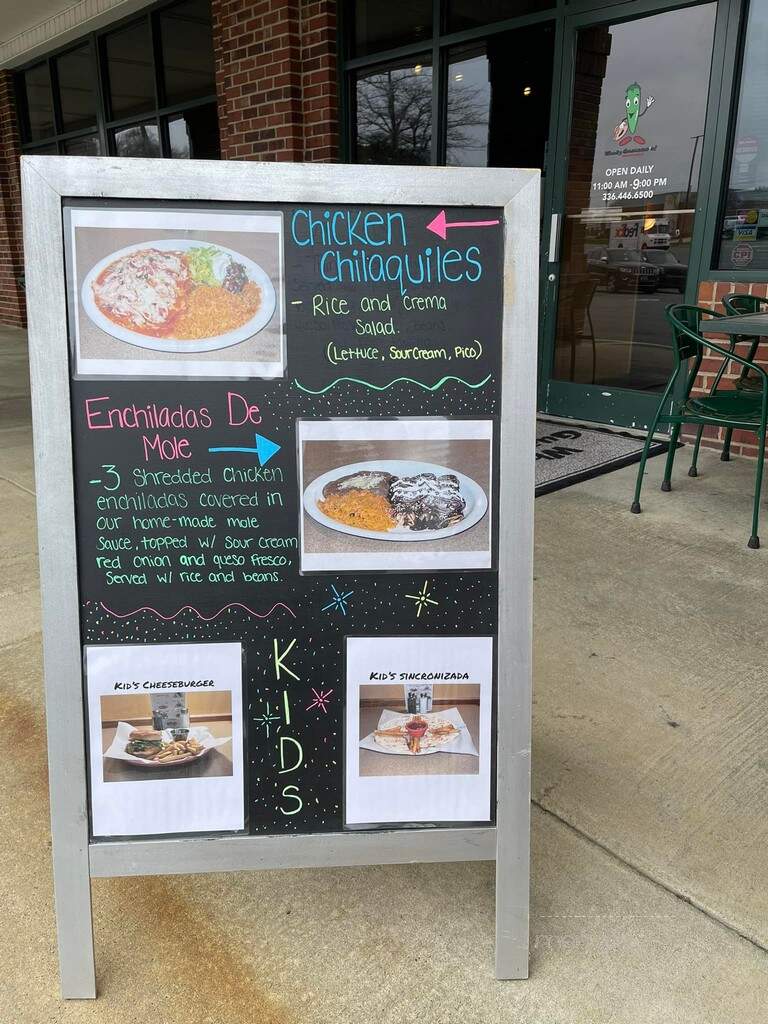 Chicken
Chilaquiles
- Rice and Crema
Salad.
(Lettuce, Sour Cream, Pico)
Enchiladas De
Mole
-3 Shredded Chicken
enchiladas covered in
our home-made mole
Sauce, topped w/ Sour Cream
red onion and queso fresco,
Served w/ rice and beans.
KIDS
Kid's Cheeseburger
Kid's sincronizada
OPEN DAILY
11:00 AM -9:00 PM
336.446.6500
VISA